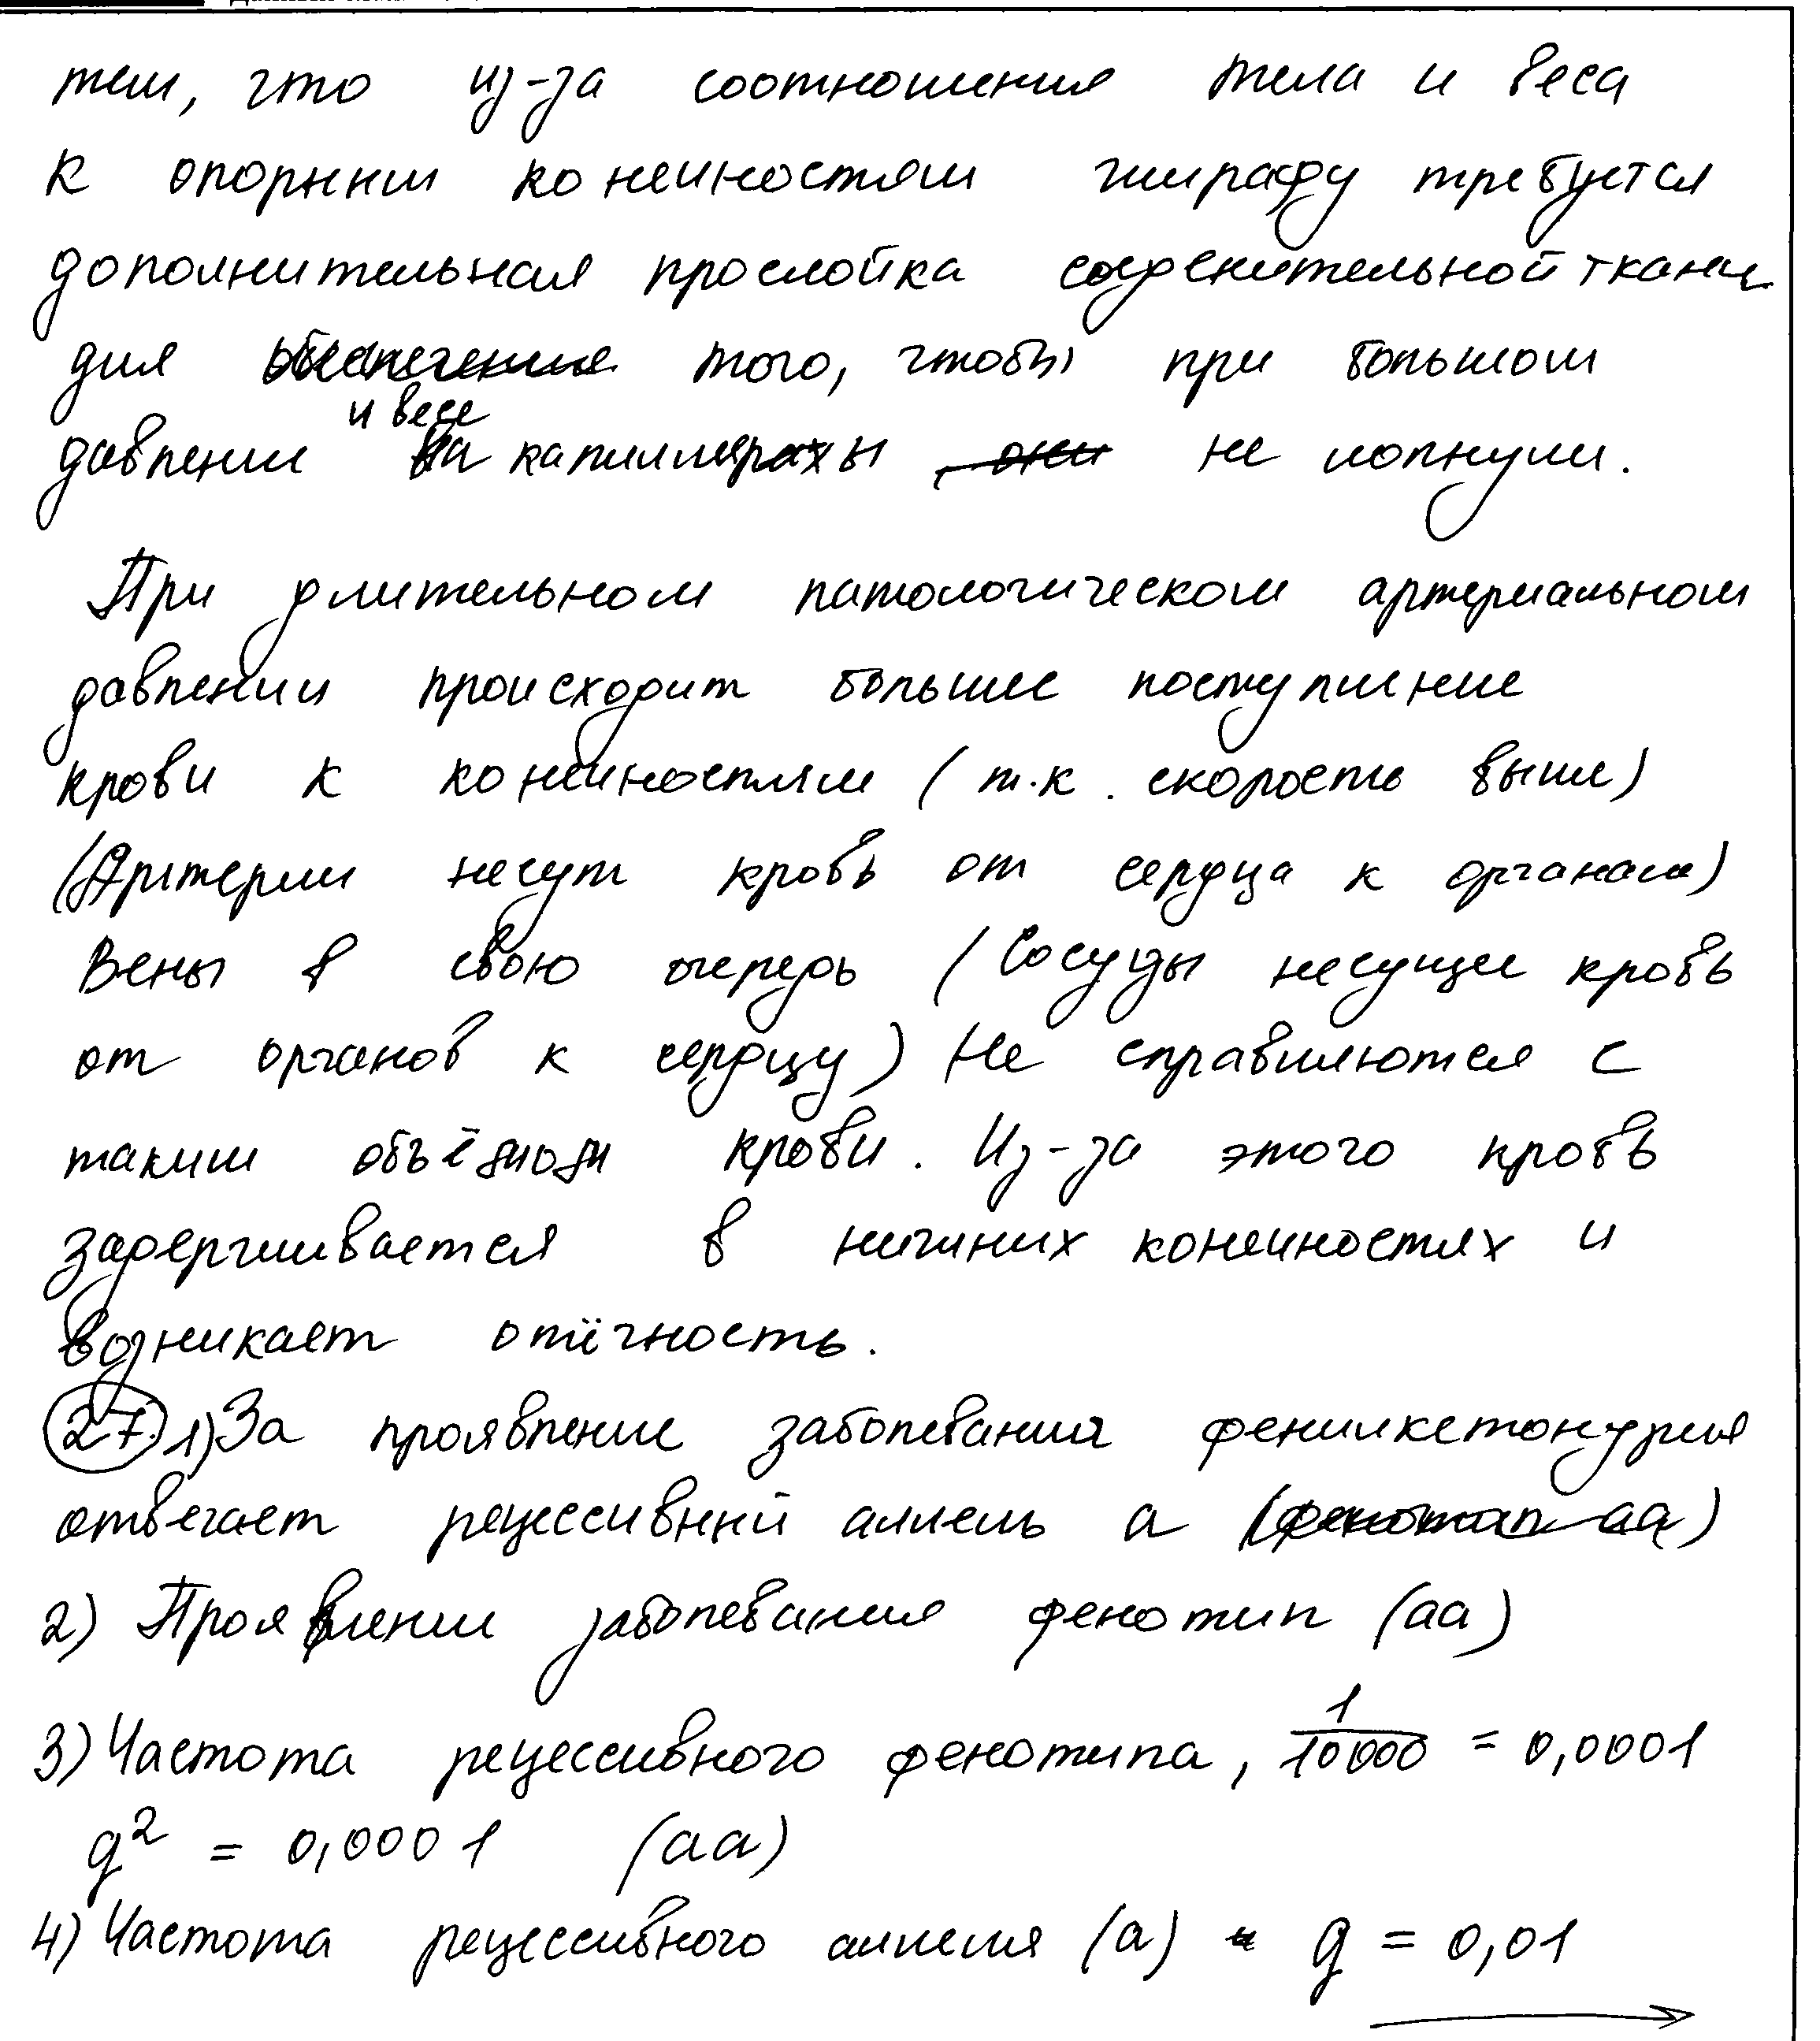 тем, что из-за соотношения тела и веса
к опорным конечностям жирафу требуется
дополнительная прослойка соеденительной ткани
для обеспечения того, чтобы при большом
и весе
давлении на капилляры, они не лопнули.
При длительном патологическом артериальном
давлении происходит большее поступление
крови к конечностям (т.к. скорость выше)
(Артерии несут кровь от сердца к органам)
Вены в свою очередь (Сосуды несущее кровь
от органов к сердцу) Не справляются с
таким объёмом крови. Из-за этого кровь
задерживается в нижних конечностях и
возникает отёчность.
27. 1) За проявление заболевания фенилкетонурия
отвечает рецессивный аллель а (фенотип аа)
2) Проявлении заболевания фенотип (аа)
3) Частота рецессивного фенотипа, 1/10000 = 0,0001
q² = 0,0001 (аа)
4) Частота рецессивного аллеля (а) q = 0,01